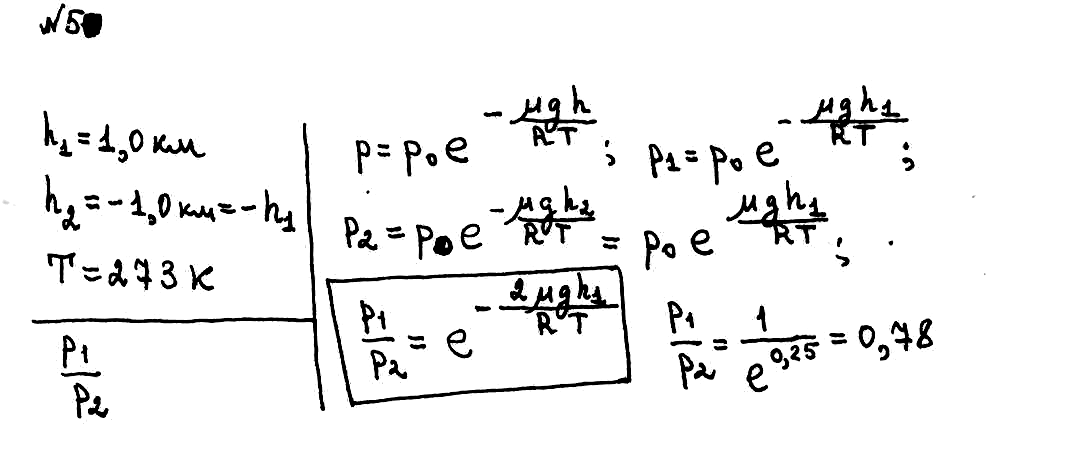 №5
h₁ = 1,0 км
h₂ = -1,0 км = -h₁
T = 273 К
p₁/p₂
p = p₀e^(-μgh/RT); p₁ = p₀e^(-μgh₁/RT);
p₂ = p₀e^(-μgh₂/RT) = p₀e^(μgh₁/RT);
p₁/p₂ = e^(-2μgh₁/RT) p₁/p₂ = 1/e^(0,25) = 0,78